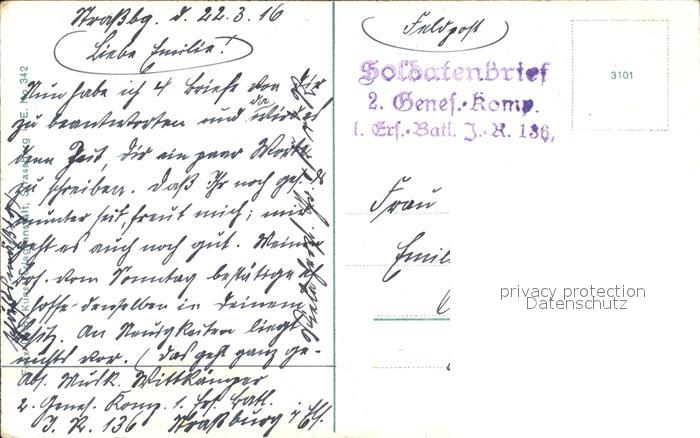 Straßbg. d. 22.3.16
Liebe Emilie!
Nun habe ich 4 Briefe von Dir
zu beantworten und da wird es
denn Zeit, dir ein paar Worte
zu schreiben. Daß Ihr noch ges. &
munter seid, freut mich; mir
geht es auch noch gut. Meine
vom Sonntag bestätige &
hoffe denselben in Deinem
Besitz. An Neuigkeiten liegt
nichts vor. (das geht ganz ge-
Abs. Musk. Wittkämper
2. Genes. Komp. 1. Ers. Batl.
I. R. 136 Straßburg i. Els.
Feldpost
Soldatenbrief
2. Genes.-Komp.
1. Ers.-Batl. J.-R. 136,
3101
Frau
Emil
privacy protection
Datenschutz